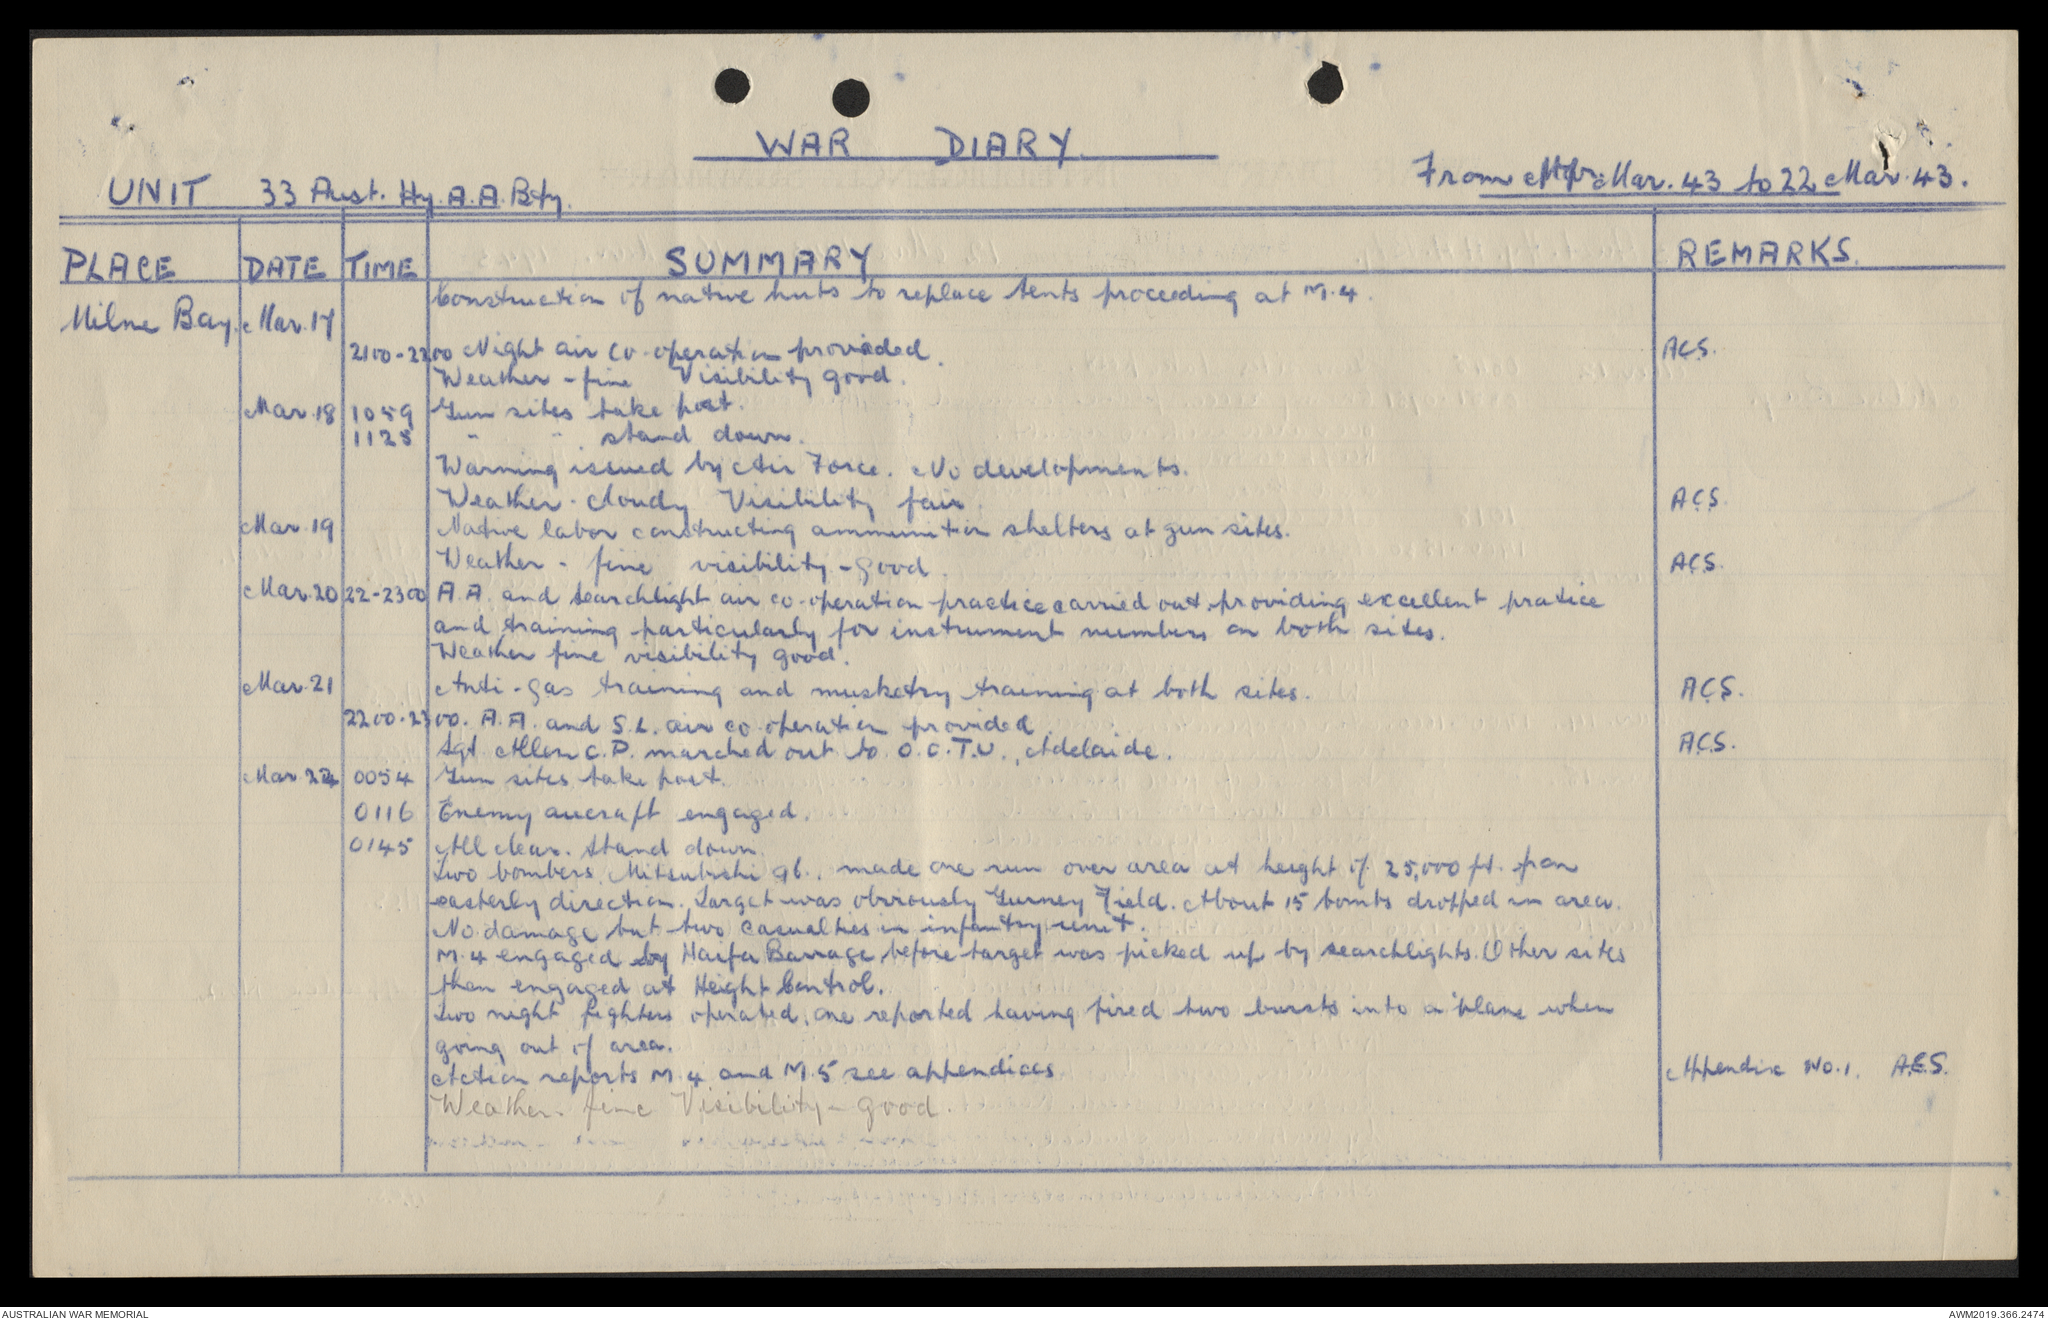 WAR DIARY.
UNIT 33 Aust. Hy. A.A. Bty.
From Mar. 43 to 22 Mar. 43.
PLACE DATE TIME SUMMARY REMARKS.
Construction of native huts to replace tents proceeding at M.4.
Milne Bay. Mar. 17
2100-2200 Night air co-operation provided. A.C.S.
Weather - fine Visibility good.
Mar. 18 1059 Gun sites take post.
1125 " " stand down.
Warning issued by Air Force. No developments.
Weather - cloudy Visibility fair. A.C.S.
Mar. 19 Native labor constructing ammunition shelters at gun sites.
Weather - fine visibility - good. A.C.S.
Mar. 20 22-2300 A.A. and Searchlight air co-operation practice carried out, providing excellent pratice
and training particularly for instrument numbers on both sites.
Weather fine visibility good.
Mar. 21 Anti-gas training and musketry training at both sites. A.C.S.
2200-2300. A.A. and S.L. air co-operation provided
Sgt. Allen C.P. marched out to O.C.T.U., Adelaide. A.C.S.
Mar 22 0054 Gun sites take post.
0116 Enemy aircraft engaged.
0145 All clear. Stand down.
Two bombers, Mitsubishi 96., made one run over area at height of 25,000 ft. from
easterly direction. Target was obviously Gurney Field. About 15 bombs dropped in area.
No damage but two casualties in infantry unit.
M.4 engaged by Haifa Barrage before target was picked up by searchlights. Other sites
then engaged at Height Control.
Two night fighters operated, one reported having fired two bursts into a 'plane when
going out of area.
Action reports M.4 and M.5 see appendices Appendix No. 1. A.C.S.
Weather - fine Visibility - good.
AUSTRALIAN WAR MEMORIAL
AWM2019.366.2474